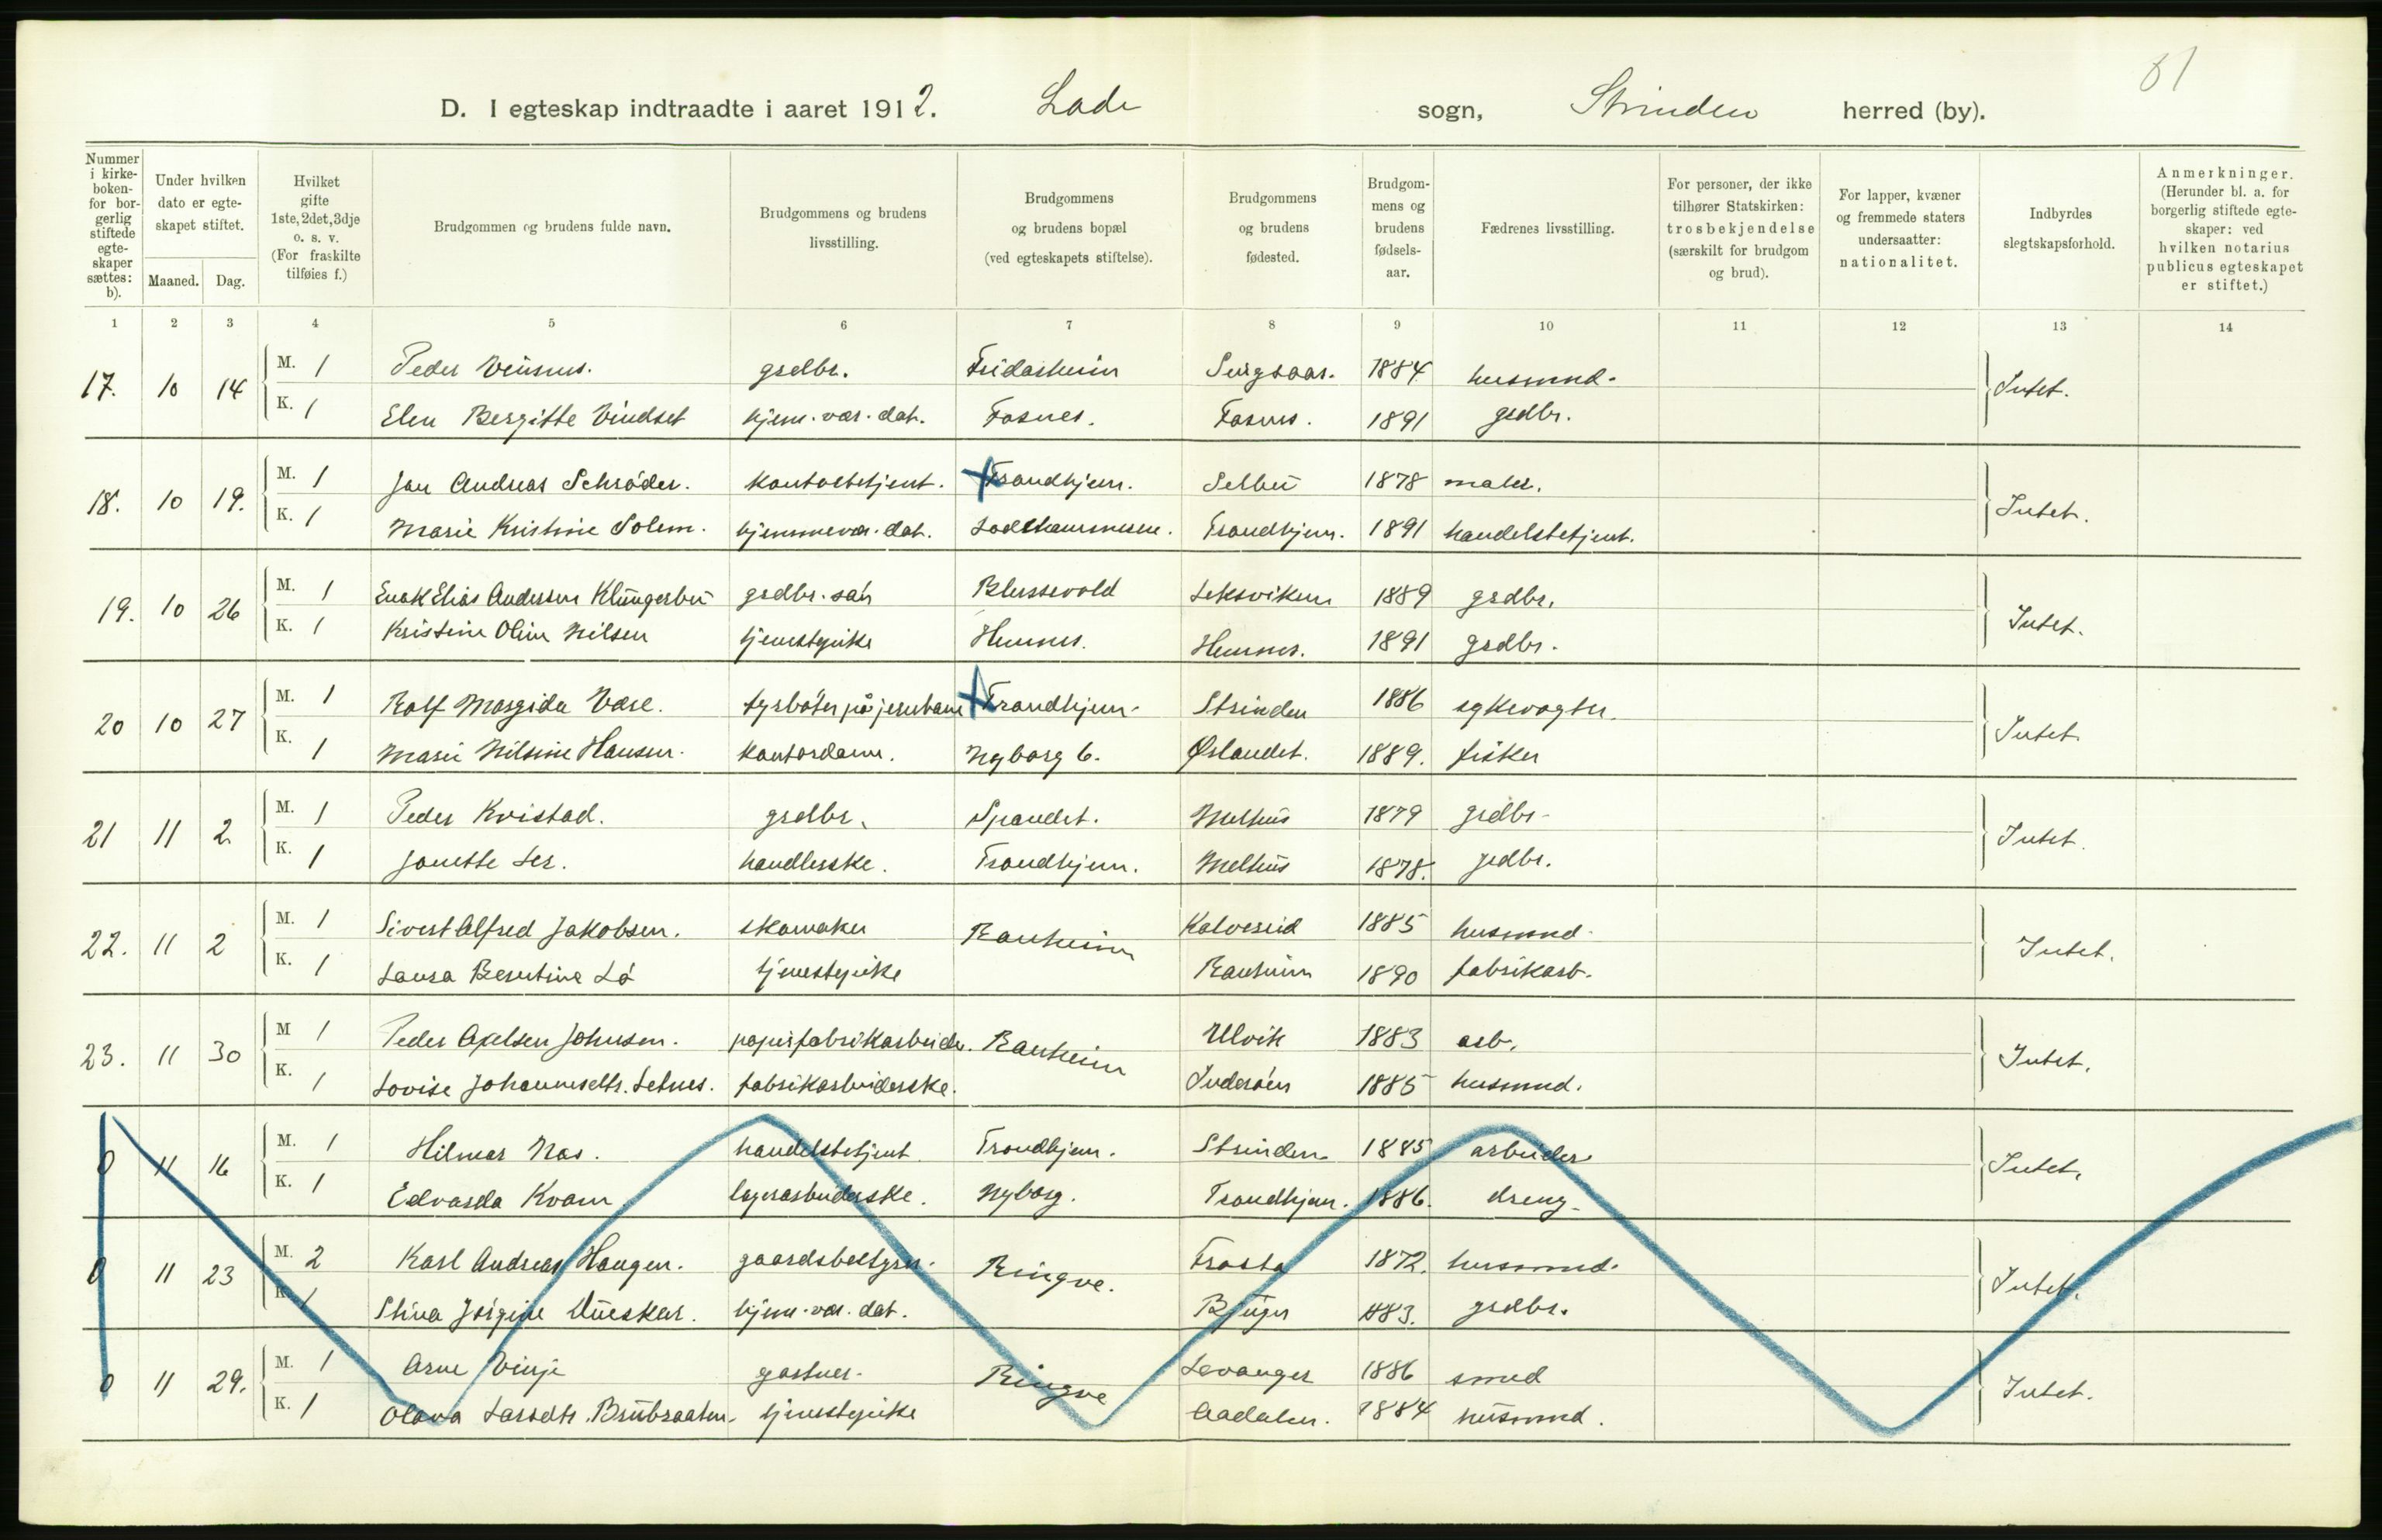 61
D. I egteskap indtraadte i aaret 1912. Lade sogn, Strinden herred (by).
Nummer i kirke-boken for bor-gerlig stiftede egte-skaper sættes: b).
Under hvilken dato er egte-skapet stiftet.
Maaned. Dag.
Hvilket gifte 1ste, 2det, 3dje o. s. v. (For fraskilte tilføies f.)
Brudgommen og brudens fulde navn.
Brudgommens og brudens livsstilling.
Brudgommens og brudens bopæl (ved egteskapets stiftelse).
Brudgommens og brudens fødested.
Brudgom-mens og brudens fødsels-aar.
Fædrenes livsstilling.
For personer, der ikke tilhører Statskirken: trosbekjendelse (særskilt for brudgom og brud).
For lapper, kvæner og fremmede staters undersaatter: nationalitet.
Indbyrdes slegtskapsforhold.
Anmerkninger. (Herunder bl. a. for borgerlig stiftede egte-skaper: ved hvilken notarius publicus egteskapet er stiftet.)
1 2 3 4 5 6 7 8 9 10 11 12 13 14
17. 10 14 M. 1 Peder grdbr. 1884 husmnd. Intet.
K. 1 Elen Bergitte Vindset hjem. vær. dat. Fosnes. Fosnes. 1891 grdbr.
18. 10 19. M. 1 Jan Andreas Schrøder. kontorbetjent. Trondhjem. Selbu 1878 maler. Intet.
K. 1 Marie Kristine Solem. hjemmevær. dat. Ladehammeren. Trondhjem. 1891 handelsbetjent.
19. 10 26 M. 1 Enok Elias Andersen Klungerbu grdbr. søn Blussevold Leksviken 1889 grdbr. Intet.
K. 1 Kristine Oline Nilsen tjenestepike Hemnes. Hemnes. 1891 grdbr.
20 10 27 M. 1 Rolf Margido Være. fyrbøter på jernbane Trondhjem. Strinden 1886 sykevogter. Intet.
K. 1 Marie Nilsine Hansen. kontordame. Nyborg 6. Ørlandet. 1889. fisker
21 11 2 M. 1 Peder Kvistad. grdbr. Spandet. Melhus 1879 grdbr. Intet.
K. 1 Janette Ler. handlerske. Trondhjem. Melhus 1878. grdbr.
22. 11 2 M. 1 Sivert Alfred Jakobsen. skomaker Ranheim Kolvereid 1885 husmnd. Intet.
K. 1 Laura Berntine Lø tjenestepike Ranheim 1890 fabrikarb.
23. 11 30 M 1 Peder Axelsen Johnsen. papirfabrikarbeider. Ranheim Ulvik 1883 arb. Intet.
K. 1 Lovise Johannesdtr. Letnes. fabrikarbeiderske. Inderøen 1885 husmnd.
0 11 16 M. 1 Hilmar Næs. handelsbetjent Trondhjem. Strinden 1885 arbeider Intet.
K. 1 Edvarda Kvam lagerarbeiderske. Nyborg. Trondhjem. 1886. dreng
0 11 23 M. 2 Karl Andreas Haugen. gaardsbestyrer. Ringve. Frosta 1872. husmnd. Intet.
K. 1 Stina Jørgine hjem. vær. dat. Bjugn 1883. grdbr.
0 11 29. M. 1 Arne Vinje gartner. Ringve Levanger 1886 smed Intet.
K. 1 Olava Larsdtr. Brubraaten. tjenestepike Aadalen. 1884 husmnd.